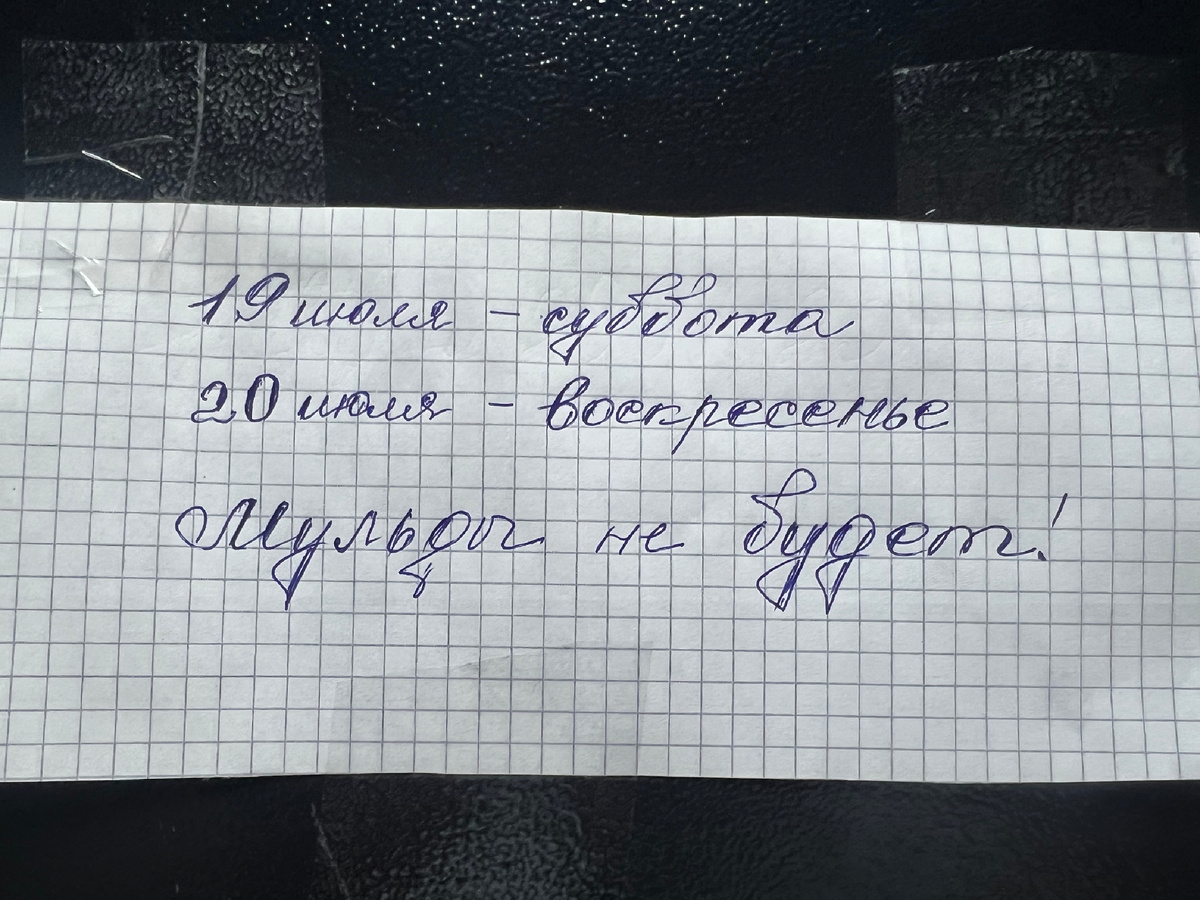 19 июля – суббота
20 июля – воскресенье
Мульды не будет!